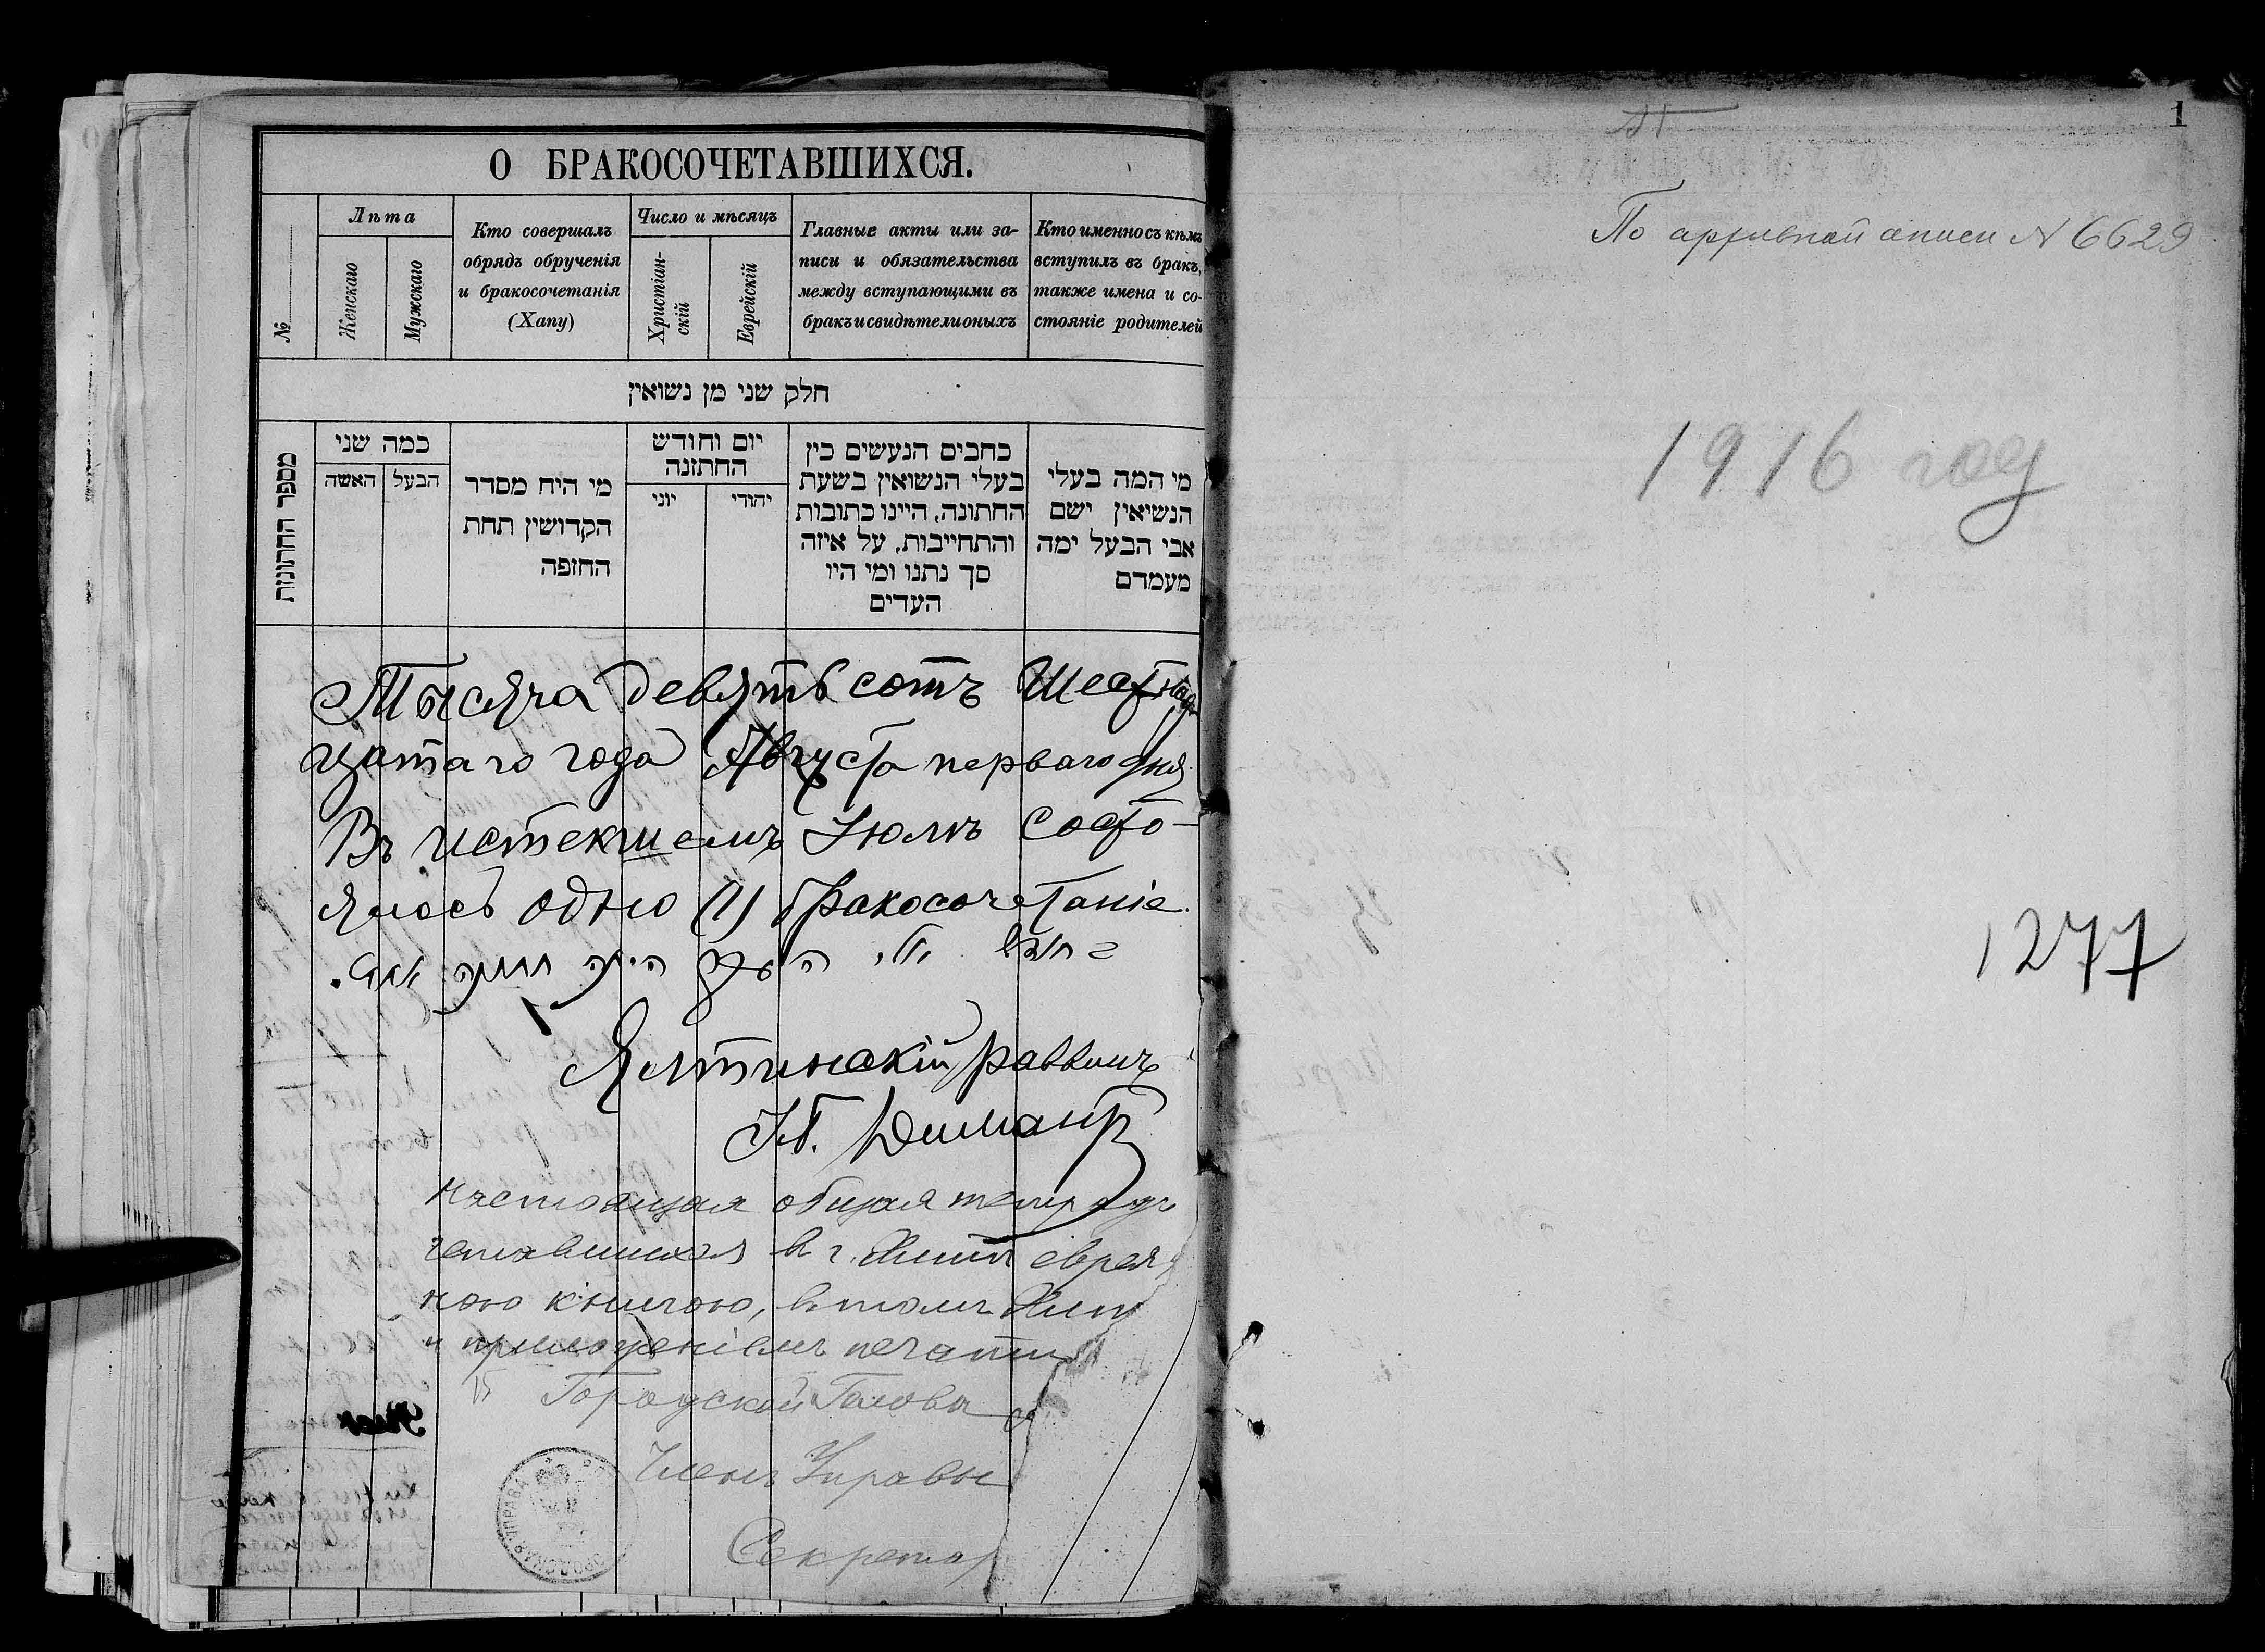 О БРАКОСОЧЕТАВШИХСЯ.
№
Лѣта
Женскаго
Мужскаго
Кто совершалъ
обрядъ обрученія
и бракосочетанія
(Хапу)
Число и мѣсяцъ
Христіан-
скій
Еврейскій
Главные акты или за-
писи и обязательства
между вступающими въ
бракъ и свидѣтели оныхъ
Кто именно съ кѣмъ
вступилъ въ бракъ,
также имена и со-
стояніе родителей
חלק שני מן נשואין
מספר החתונות
כמה שני
האשה
הבעל
מי היח מסדר
הקדושין תחת
החופה
יום וחודש
החתונה
יוני
יהודי
כתבים הנעשים בין
בעלי הנשואין בשעת
החתונה, היינו כתובות
והתחייבות, על איזה
סך נתנו ומי היו
העדים
מי המה בעלי
הנשיאין ישם
אבי הבעל ימה
מעמדם
Тысяча девятьсотъ Шестнад-
цатаго года Августа перваго дня
Въ истекшемъ Іюлѣ состо-
ялось одно (1) бракосочетаніе.
Ялтинскій раввинъ
Настоящая общая тетрадь
четавшихся въ г. Ялтѣ евре
ною книгою, въ томъ Ялт
и приложеніемъ печати
Городской Голова
Членъ Управы
Секретар
УПРАВА
1
По архивной описи № 6629
1916 год
1277